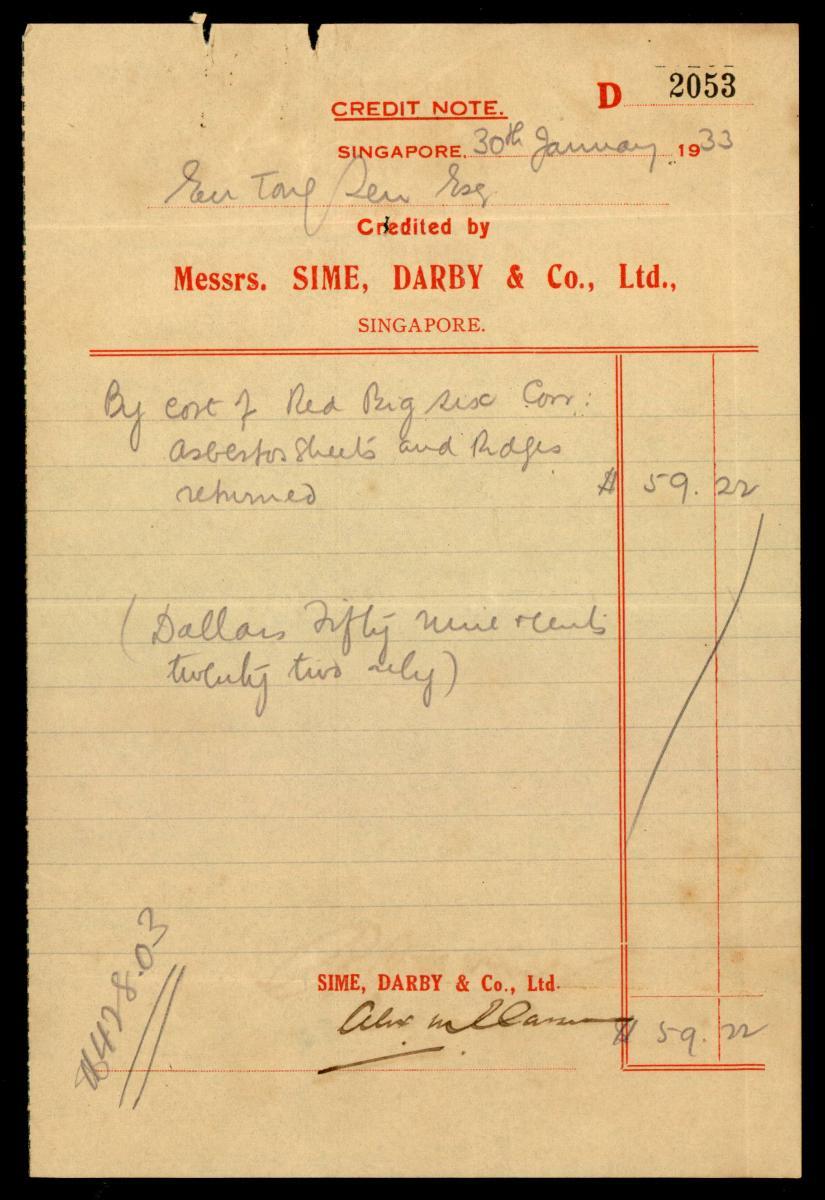 D 2053
CREDIT NOTE.
SINGAPORE, 30th January 1933
Eu Tong Sen Esq
Credited by
Messrs. SIME, DARBY & Co., Ltd.,
SINGAPORE.
By cost of Red Big Six Corr:
Asbestos Sheets and Ridges
returned $ 59.22
(Dollars Fifty nine & cents
twenty two only)
SIME, DARBY & Co., Ltd.
Alex
$ 59.22
$428.03